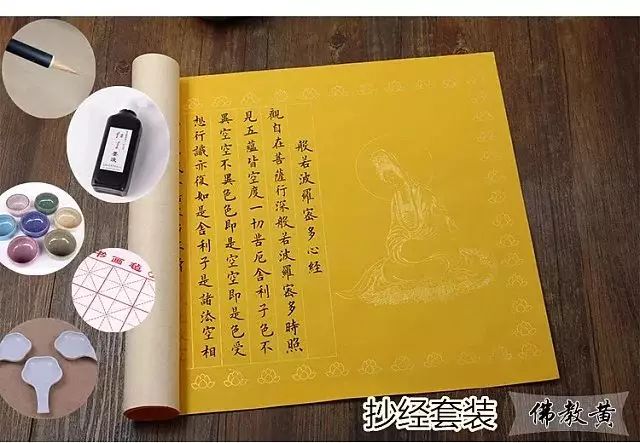 般若波羅蜜多心經
觀自在菩薩行深般若波羅蜜多時照
見五蘊皆空度一切苦厄舍利子色不
異空空不異色色即是空空即是色受
想行識亦復如是舍利子是諸法空相
墨液
书画毡
抄经套装
佛教黄